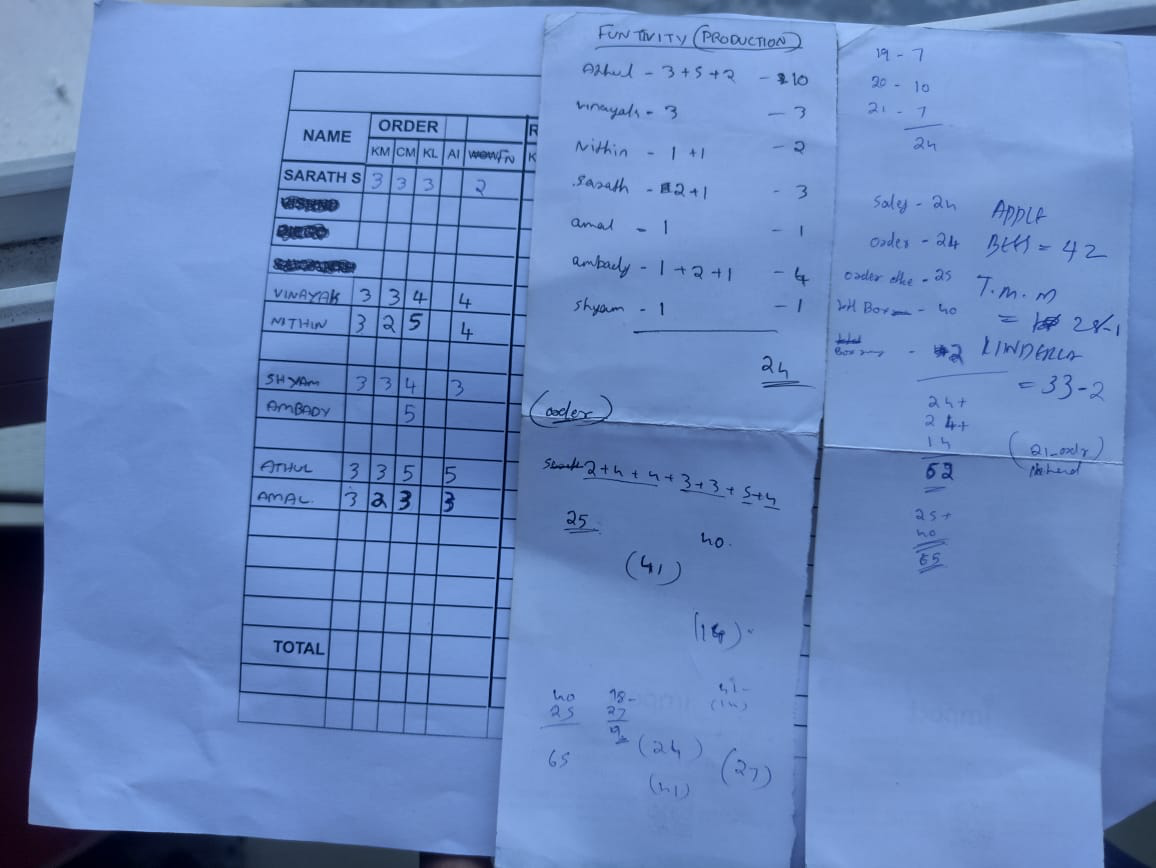 NAME ORDER R
KM CM KL AI FN K
SARATH S 3 3 3 2
VINAYAK 3 3 4 4
NITHIN 3 2 5 4
SHYAM 3 3 4 3
AMBADY 5
ATHUL 3 3 5 5
AMAL. 3 2 3 3
TOTAL
FUNTIVITY (PRODUCTION)
Athul - 3+5+2 - 10
vinayak - 3 - 3
Nithin - 1 +1 - 2
Sarath - 2+1 - 3
amal - 1 - 1
ambady - 1+2+1 - 4
Shyam - 1 - 1
24
(order)
2+4+4+3+3+5+4
25
40.
(41)
(14)
40
25
65
18-
27
9
41-
(14)
(24)
(27)
(41)
19 - 7
20 - 10
21 - 7
24
Sales - 24
order - 24
order - 25
Box - 40
Box - 2
APPLE
BEES = 42
T.M.M
= 28-1
KINDERLA
= 33-2
24+
24+
14
62
(21-order)
25+
40
65